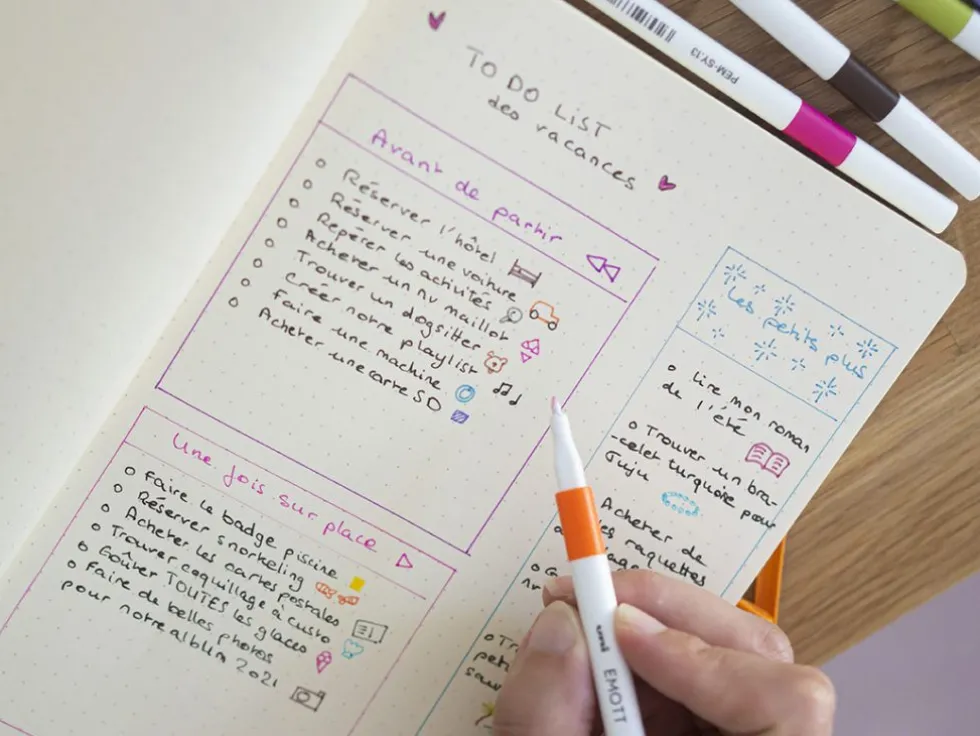 TO DO LIST
des vacances
Avant de partir
Réserver l'hôtel
Réserver une voiture
Repérer les activités
Acheter un nv maillot
Trouver un dogsitter
Créer notre playlist
faire une machine
Acheter une carte SD
Une fois sur place
Faire le badge piscine
Réserver snorkeling
Acheter les cartes postales
Trouver coquillage à custo
Goûter TOUTES les glaces
Faire de belles photos
pour notre album 2021
Les petits plus
Lire mon roman
de l'été
Trouver un bra-
-celet turquoise pour
Juju
Acheter de
raquettes
PEM-SY.13
uni EMOTT